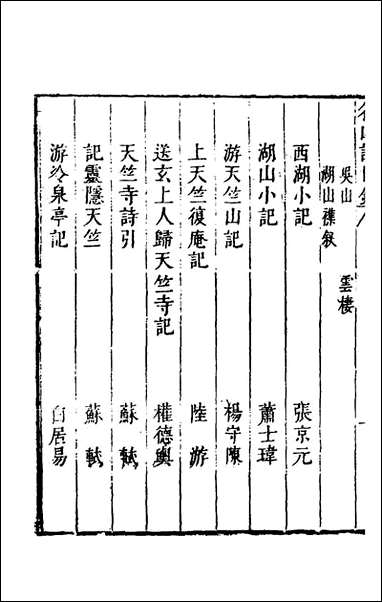 吳山　雲棲
湖山襍敘
西湖小記　張京元
湖山小記　蕭士瑋
游天竺山記　楊守陳
上天竺復庵記　陸游
送玄上人歸天竺寺記　權德輿
天竺寺詩引　蘇軾
記靈隱天竺　蘇軾
游冷泉亭記　白居易